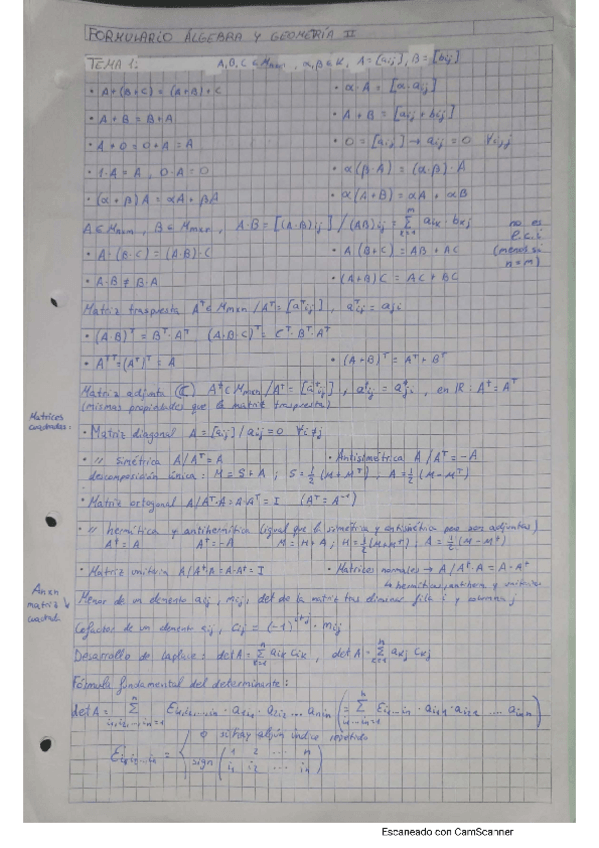 FORMULARIO ÁLGEBRA Y GEOMETRÍA II
TEMA 1: A,B,C ∈ Mmxn, α,β ∈ K, A=[aij], B=[bij]
• A+(B+C) = (A+B)+C • α·A = [α·aij]
• A+B = B+A A+B = [aij + bij]
• A+0 = 0+A = A • 0=[aij] → aij = 0 ∀i,j
• 1·A = A, 0·A = 0 • α(β·A) = (α·β)·A
• (α+β)A = αA + βA • α(A+B) = αA + αB
A ∈ Mnxm, B ∈ Mmxn, A·B = [(A·B)ij] / (AB)ij = Σ aik·bkj no es
• A·(B·C) = (A·B)·C • A(B+C) = AB + AC l.c.i (menos si
• A·B ≠ B·A • (A+B)C = AC + BC n=m)
Matriz traspuesta Aᵀ ∈ Mmxn / Aᵀ = [aᵀij], aᵀij = aji
• (A·B)ᵀ = Bᵀ·Aᵀ (A·B·C)ᵀ = Cᵀ·Bᵀ·Aᵀ
• Aᵀᵀ = (Aᵀ)ᵀ = A • (A+B)ᵀ = Aᵀ + Bᵀ
Matriz adjunta (ℂ) A† ∈ Mmxn / A† = [a†ij], a†ij = a*ji, en ℝ: A† = Aᵀ
(mismas propiedades que la matriz traspuesta)
Matrices
cuadradas:
• Matriz diagonal A = [aij] / aij = 0 ∀i≠j
• " simétrica A / Aᵀ = A • Antisimétrica A / Aᵀ = -A
descomposición única: M = S+A; S = ½(M+Mᵀ), A = ½(M-Mᵀ)
• Matriz octogonal A / Aᵀ·A = A·Aᵀ = I (Aᵀ = A⁻¹)
• " hermítica y antihermítica (igual que la simétrica y antisimétrica pero son adjuntas)
A† = A A† = -A M = H+A; H = ½(M+M†); A = ½(M-M†)
• Matriz unitaria A / A†·A = A·A† = I • Matrices normales → A / A†·A = A·A†
↳ hermíticas, antiherm y unitarias
Anxn
matriz
cuadrada
Menor de un elemento aij, mij, det de la matriz tras eliminar fila i y columna j
Cofactor de un elemento aij, cij = (-1)^(i+j)·mij
Desarrollo de Laplace: detA = Σ aik cik, detA = Σ akj ckj
Fórmula fundamental del determinante:
detA = Σ εi1,i2,...,in · a1i1·a2i2 ... anin (= Σ εi1...in · ai11·ai21 .... ainn)
εi1i2...in = { 0 si hay algún índice repetido
sign (1 2 ... n
i1 i2 ... in)
Escaneado con CamScanner